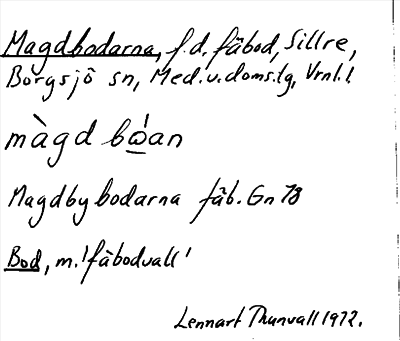 Magdbodarna, f.d. fäbod, Sillre,
Borgsjö sn, Med.v.doms.lg, Vrnl.l
màgd bώ̲an
Magdbybodarna fäb. Gn 78
Bod, m. 'fäbodvall'
Lennart Thunvall 1972.